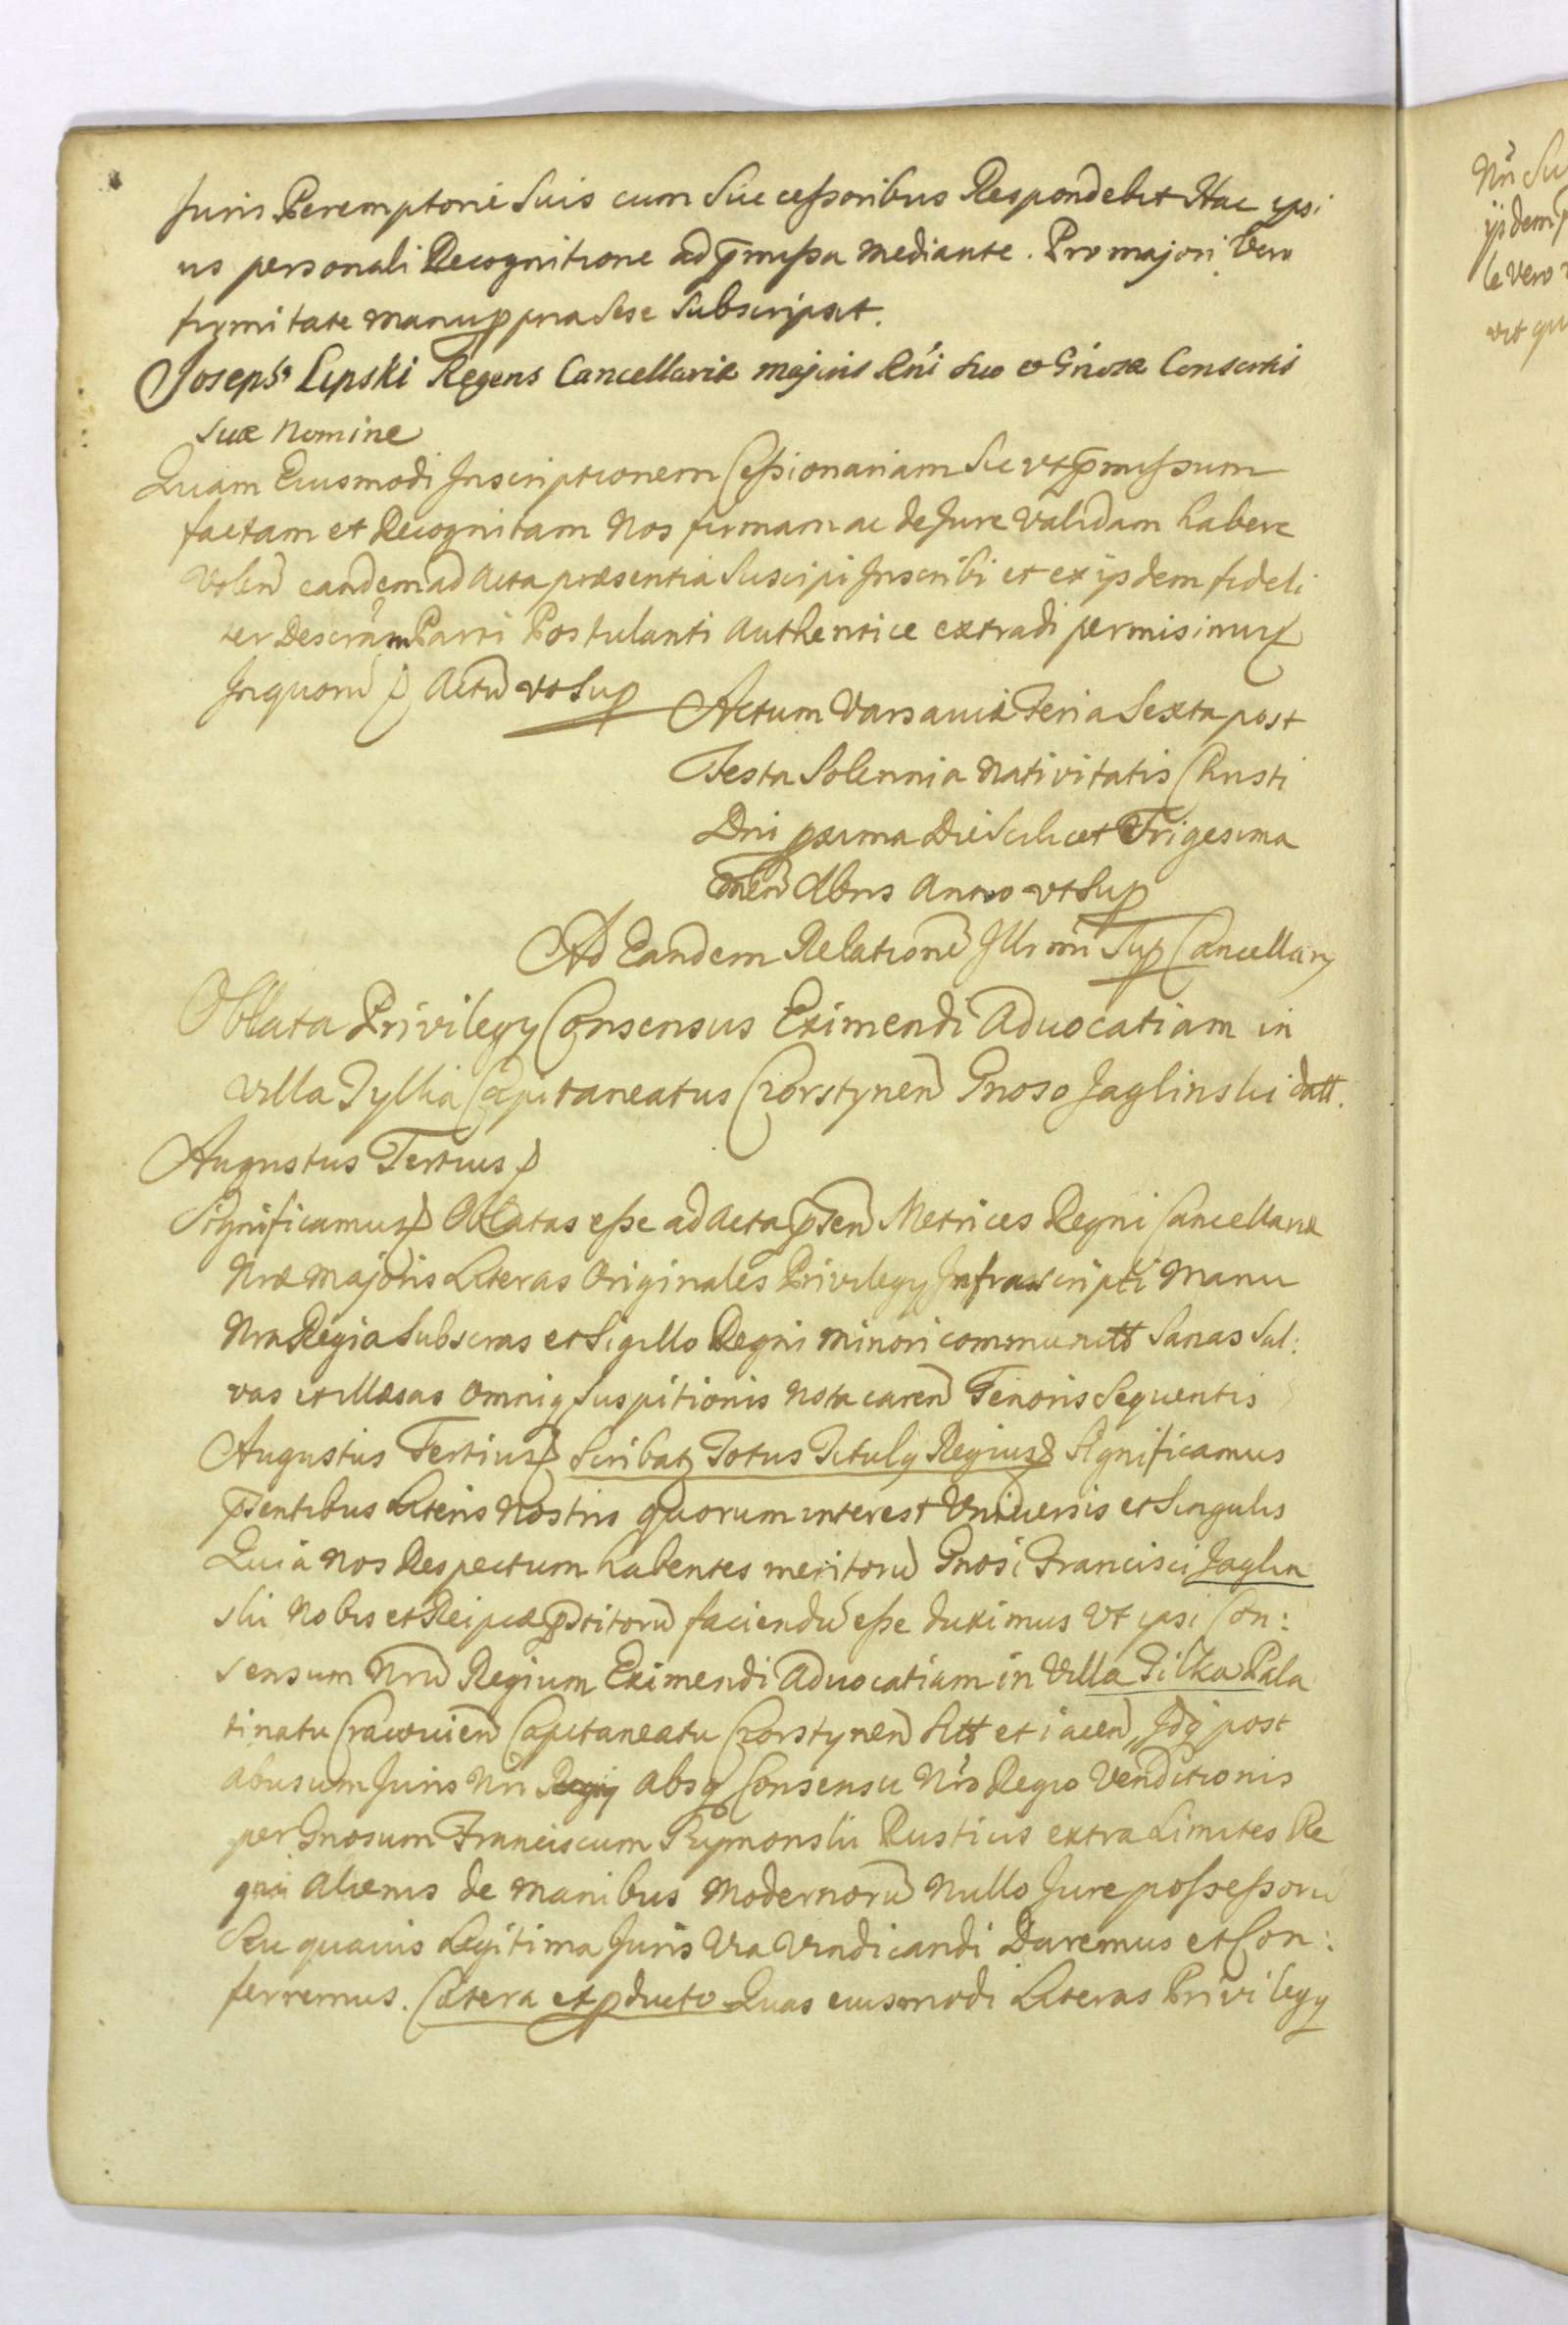 Juris Peremptorie Suis cum Successoribus Respondebit Hac ipsi
us personali Recognitione ad p̄missa mediante. Pro majori Vero
firmitate manu ppria sese Subscripsit.
Josephs Lipski Regens Cancellariæ majoris Rńi suo et Gńosæ Consortis
suæ Nomine
Quam Eiusmodi Inscriptionem Cessionariam Sic vt p̄missum
factam et Recognitam Nos firmam ac de Jure Validam habere
Volen̄ eandem ad Acta præsentia Suscipi Inscribi et ex ijsdem fideli
ter Descrām Parti Postulanti Authentice extradi permisimus
In quorū Actū vt Sup
Actum Varsaviæ Feria Sexta post
Festa Solennia Nativitatis Christi
Dni pxima Die Scilicet Trigesima
Men̄ Xbris Anno vt Sup
Ad Eandem Relationē Illrmi Sup Cancellarij
Oblata Privilegy Consensus Eximendi Aduocatiam in
Villa Tylka Capitaneatus Czorstynen̄ Gnoso Jaglinski datt.
Augustus Tertius
Significamus Oblatas esse ad Acta p̄sen̄ Metrices Regni Cancellariæ
Nræ majoris Literas Originales Privilegy Infrascripti Manu
Nra Regia Subscras et Sigillo Regni minori communitt Sanas Sal:
vas et illæsas Omniq Suspitionis Nota caren̄ Tenoris Sequentis
Augustus Tertius Scribatz Totus Titulq Regius Significamus
p̄sentibus Literis Nostris quorum interest Vniuersis et Singulis
Quia Nos Respectum habentes meritorū Gnosi Francisci Jaglin
ski Nobis et Reipcæ pstitorū faciendū esse duximus Vt ipsi Con:
sensum Nrū Regium Eximendi Aduocatiam in Villa Tilka Pala
tinatu Cracouien̄ Capitaneatu Czorstynen̄ Sitt et iacen̄, Idq post
abusum Juris Nri Regij absq Consensu Nr̄o Regio Venditionis
per Gnosum Franciscum Rymonski Rusticis extra Limites Re
gni alienis de manibus Modernorū Nullo Jure possessorū
Seu quauis Legitima Juris Via Vindicandi Daremus et Con:
ferremus. Cætera et pducto Quas eiusmodi Literas Privilegy
Nr̄i Su
ijsdem
le Vero